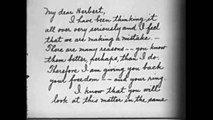 My dear Herbert,
I have been thinking it
all over very seriously and I feel
that we are making a mistake –
There are many reasons – you know
them better, perhaps, than I do.
Therefore I am giving you back
your freedom – and your ring.
I know that you will
look at this matter in the same